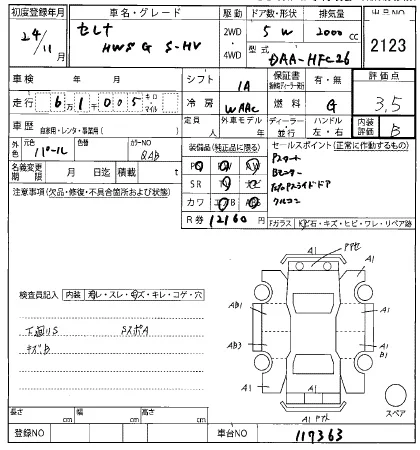 初度登録年月 車名・グレード 駆動 ドア数・形状 排気量 出品NO
24/11月 セレナ 2WD・4WD 5 W 2000 cc 2123
HWS G S-HV 型式 DAA-HFC26
車検 年 月 シフト IA 保証書 有・無 評価点
走行 61005 キロ・マイル 冷房 WAAC 燃料 G 3.5
車歴 自家用・レンタ・事業用( ) 定員 人 外車モデル 年 ディーラー・並行 ハンドル 左・右 内装評価 B
外色 元色 パール 色替 カラーNO QAB 装備品(純正品に限る) セールスポイント(正常に作動するもの)
名義変更期限 月 日迄 積載 t PS PW AW Pスタート
注意事項(欠品・修復・不具合箇所および状態) SR TV ナビ Bモニター
カワ エアB AB 左右Pスライドドア
R券 12160 円 クルコン
Fガラス 石・キズ・ヒビ・ワレ・リペア跡
検査員記入 内装 汚レ・スレ・キズ・キレ・コゲ・穴
下廻りS SズボA
キズB
A1
A1
AB1 A1
AB3 A1
A1 A1 B1
A1
スペア
長さ cm 幅 cm 高さ cm
登録NO 車台NO 117363